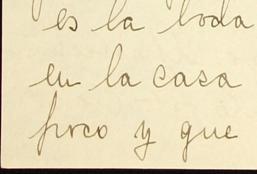 es la boda
en la casa
poco y que